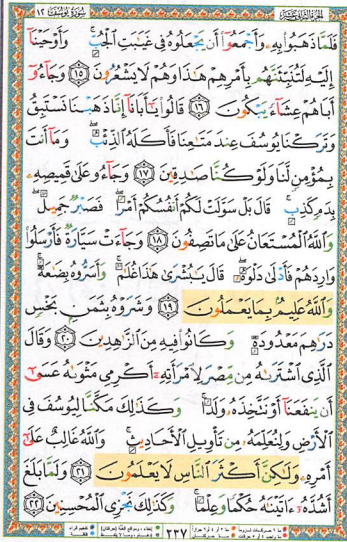 الجزء الثاني عشر سورة يوسف ١٢
فَلَمَّا ذَهَبُوا۟ بِهِۦ وَأَجْمَعُوٓا۟ أَن يَجْعَلُوهُ فِى غَيَـٰبَتِ ٱلْجُبِّ ۚ وَأَوْحَيْنَآ
إِلَيْهِ لَتُنَبِّئَنَّهُم بِأَمْرِهِمْ هَـٰذَا وَهُمْ لَا يَشْعُرُونَ ١٥ وَجَآءُو
أَبَاهُمْ عِشَآءً يَبْكُونَ ١٦ قَالُوا۟ يَـٰٓأَبَانَآ إِنَّا ذَهَبْنَا نَسْتَبِقُ
وَتَرَكْنَا يُوسُفَ عِندَ مَتَـٰعِنَا فَأَكَلَهُ ٱلذِّئْبُ ۖ وَمَآ أَنتَ
بِمُؤْمِنٍ لَّنَا وَلَوْ كُنَّا صَـٰدِقِينَ ١٧ وَجَآءُو عَلَىٰ قَمِيصِهِۦ
بِدَمٍ كَذِبٍ ۚ قَالَ بَلْ سَوَّلَتْ لَكُمْ أَنفُسُكُمْ أَمْرًا ۖ فَصَبْرٌ جَمِيلٌ ۖ
وَٱللَّهُ ٱلْمُسْتَعَانُ عَلَىٰ مَا تَصِفُونَ ١٨ وَجَآءَتْ سَيَّارَةٌ فَأَرْسَلُوا۟
وَارِدَهُمْ فَأَدْلَىٰ دَلْوَهُۥ ۖ قَالَ يَـٰبُشْرَىٰ هَـٰذَا غُلَـٰمٌ ۚ وَأَسَرُّوهُ بِضَـٰعَةً ۚ
وَٱللَّهُ عَلِيمٌۢ بِمَا يَعْمَلُونَ ١٩ وَشَرَوْهُ بِثَمَنٍۭ بَخْسٍ
دَرَٰهِمَ مَعْدُودَةٍ وَكَانُوا۟ فِيهِ مِنَ ٱلزَّٰهِدِينَ ٢٠ وَقَالَ
ٱلَّذِى ٱشْتَرَىٰهُ مِن مِّصْرَ لِٱمْرَأَتِهِۦٓ أَكْرِمِى مَثْوَىٰهُ عَسَىٰٓ
أَن يَنفَعَنَآ أَوْ نَتَّخِذَهُۥ وَلَدًا ۚ وَكَذَٰلِكَ مَكَّنَّا لِيُوسُفَ فِى
ٱلْأَرْضِ وَلِنُعَلِّمَهُۥ مِن تَأْوِيلِ ٱلْأَحَادِيثِ ۚ وَٱللَّهُ غَالِبٌ عَلَىٰٓ
أَمْرِهِۦ وَلَـٰكِنَّ أَكْثَرَ ٱلنَّاسِ لَا يَعْلَمُونَ ٢١ وَلَمَّا بَلَغَ
أَشُدَّهُۥٓ ءَاتَيْنَـٰهُ حُكْمًا وَعِلْمًا ۚ وَكَذَٰلِكَ نَجْزِى ٱلْمُحْسِنِينَ ٢٢
٢٣٧